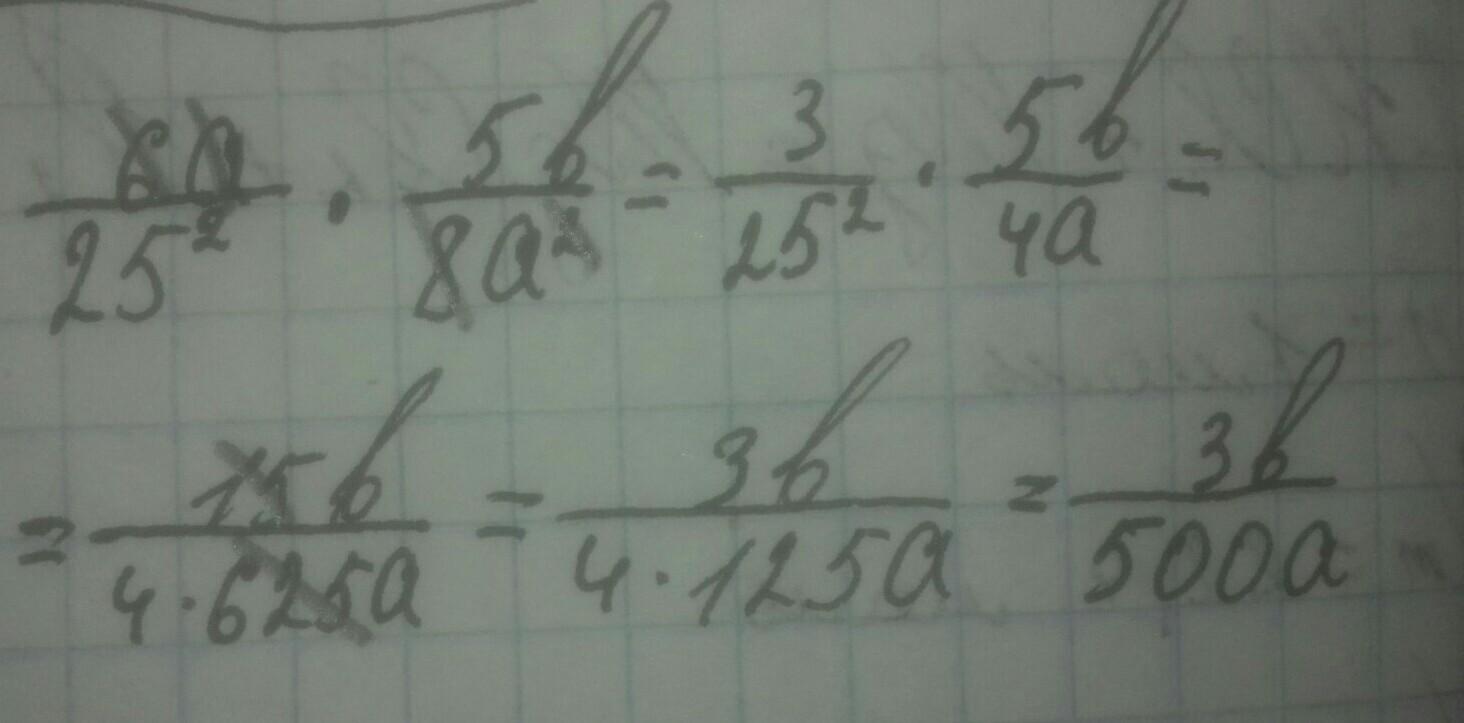 6a/25² · 5b/8a² = 3/25² · 5b/4a =
= 15b/4·625a = 3b/4·125a = 3b/500a